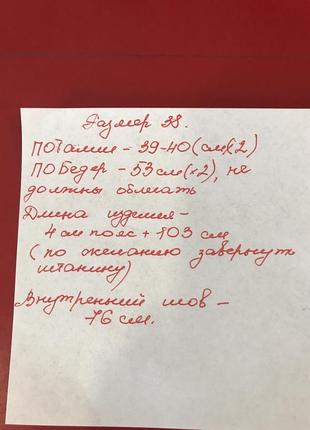 Размер 38.
ПОТалии - 39-40(см)(х2)
ПО Бедер - 53см(х2), не
должны облегать
Длина изделия -
4 см пояс + 103 см
(по желанию завернуть
штанину)
Внутренний шов -
76 см.